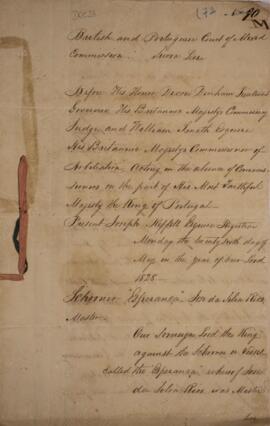 British and Portuguese Court of Mixed
Commission. Sierra Leone
Before His Honor Dixon Denham Lieutenant
Governor His Britannic Majestys Commissary
Judge and William Smith Esquire
His Britannic Majestys Commissioner of
Arbitration Acting in the absence of Commis
sioners on the part of His Most Faithful
Majesty the King of Portugal
Present Joseph Esquire Registrar
Monday the twenty sixth day of
May in the year of our Lord
1828.
Schooner "Esperança" da Silva Rios
Master
Our Sovereign Lord the King
against the Schooner or Vessel
called the Esperança whereof
da Silva Rios was Master